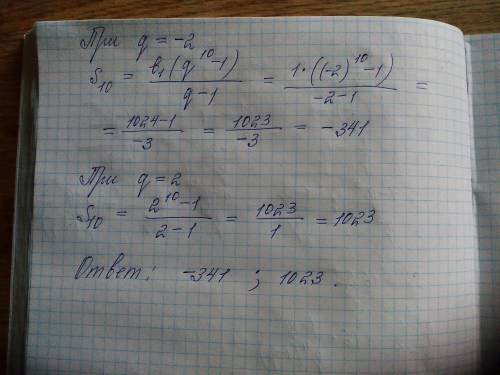 При q = -2
S₁₀ = b₁(q¹⁰-1)/(q-1) = 1·((-2)¹⁰-1)/(-2-1) =
= (1024-1)/(-3) = 1023/(-3) = -341
При q = 2
S₁₀ = (2¹⁰-1)/(2-1) = 1023/1 = 1023
Ответ: -341 ; 1023.